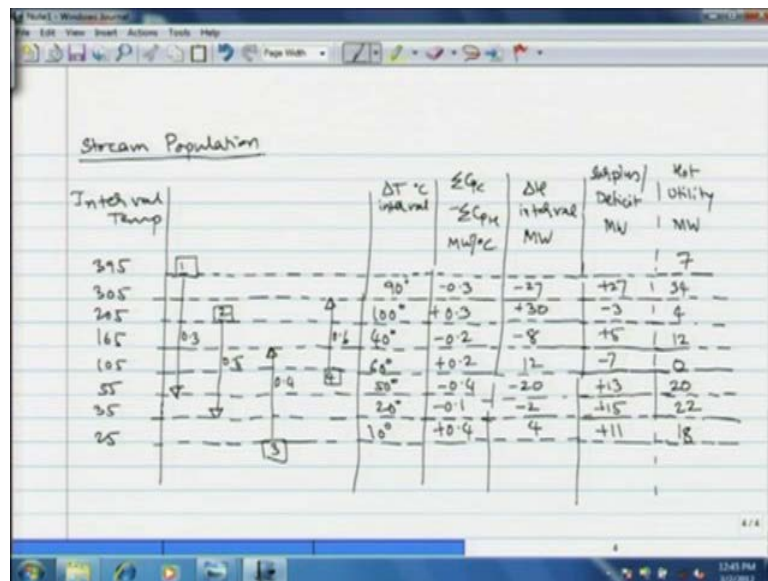 Note1 - Windows Journal
File Edit View Insert Actions Tools Help
Page Width
Stream Population
Interval Temp
ΔT °C interval
ΣCpc -ΣCpH MW/°C
ΔH interval MW
Surplus/ Deficit MW
Hot Utility MW
395 1 7
90° -0.3 -27 +27 34
305
100° +0.3 +30 -3 4
205 2
165 0.3 0.6 40° -0.2 -8 +5 12
105 0.5 60° +0.2 12 -7 0
0.4 4
55 50° -0.4 -20 +13 20
35 20° -0.1 -2 +15 22
25 10° +0.4 4 +11 18
3
4/4
4
12:45 PM